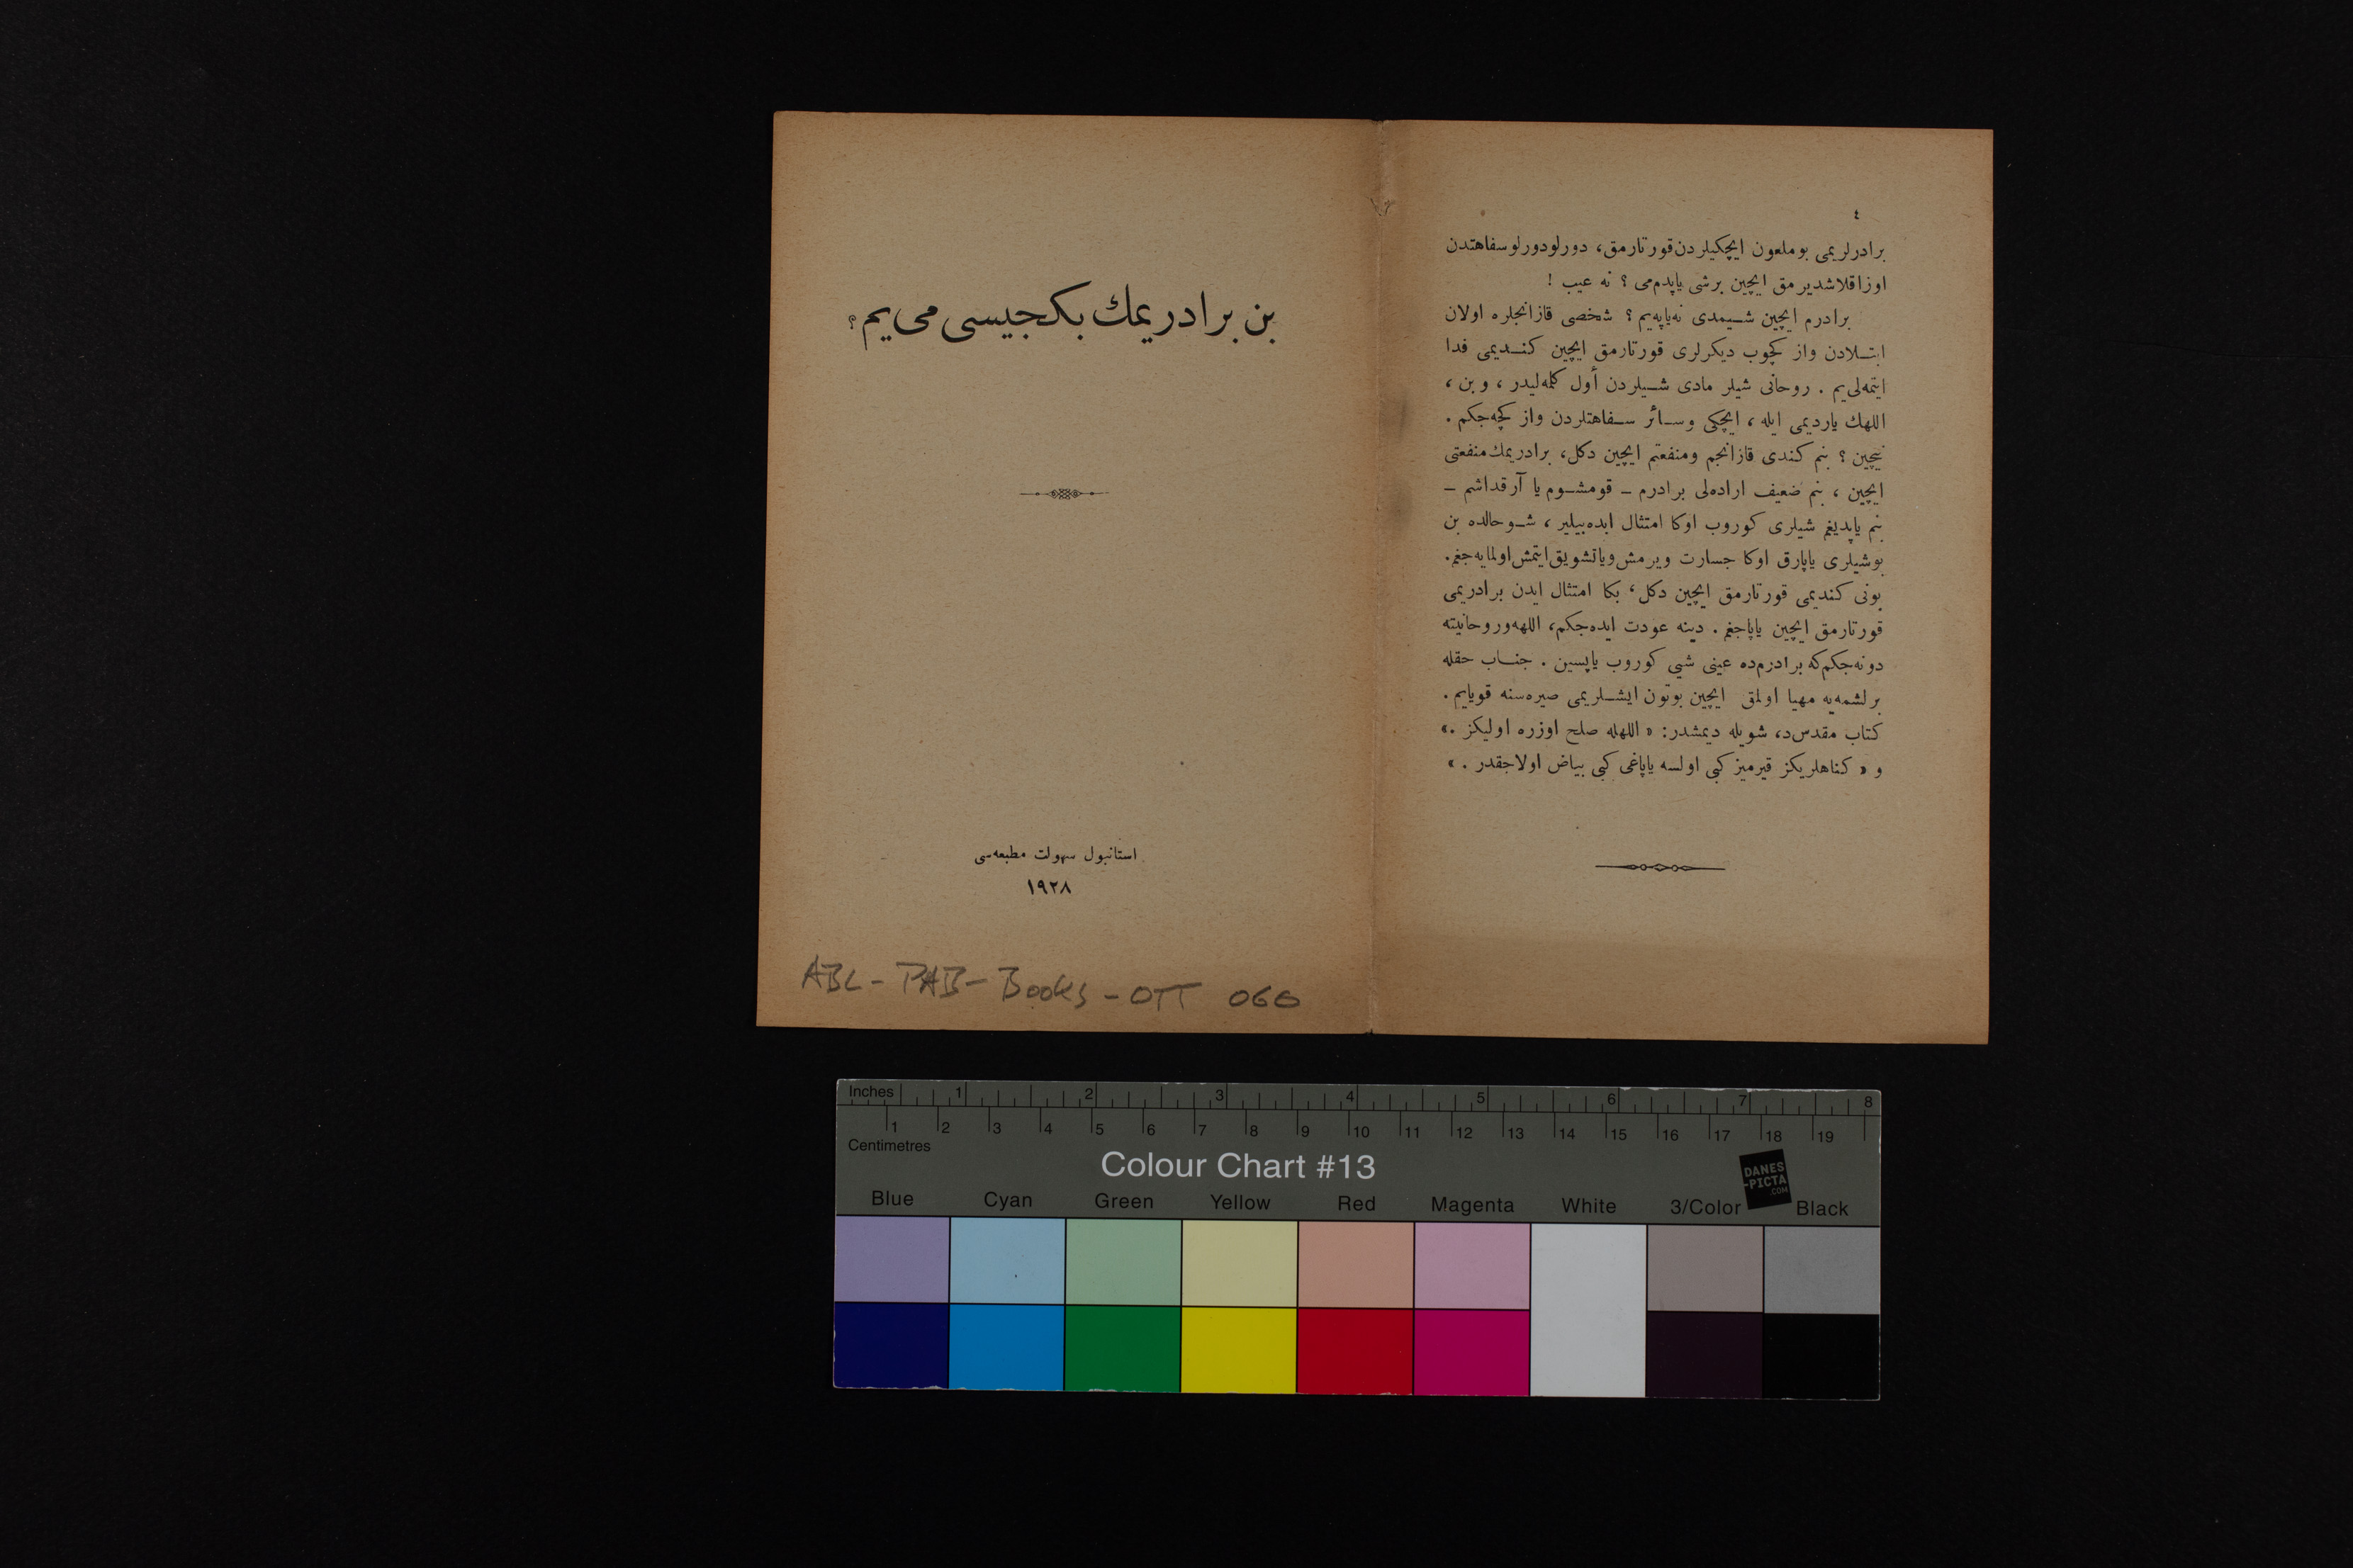 بن برادریمك بكجیسی می یم؟
استانبول سهولت مطبعه‌سی
١٩٢٨
ABL - PAB - Books - OTT 066
٤
برادرلریمی بو ملعون ایچكیلردن قورتارمق، دورلو دورلو سفاهتدن
اوزاقلاشدیرمق ایچین برشی یاپدم‌می ؟ نه عیب !
برادرم ایچین شیمدی نه‌یاپه‌یم ؟ شخصی قازانجلره اولان
ابتلادن واز كچوب دیكرلری قورتارمق ایچین كندیمی فدا
ایتمه‌لی‌یم . روحانی شیلر مادی شیلردن أول كلمه‌لیدر ، و بن ،
اللهك یاردیمی ایله ، ایچكی وسائر سفاهتلردن واز كچه‌جكم .
نیچین ؟ بنم كندی قازانجم ومنفعتم ایچین دكل، برادریمك منفعتی
ایچین ، بنم ضعیف اراده‌لی برادرم – قومشوم یا آرقداشم –
بنم یاپدیغم شیلری كوروب اوكا امتثال ایده‌بیلیر ، شو حالده بن
بو شیلری یاپارق اوكا جسارت ویرمش ویا تشویق ایتمش اولمایه‌جغم.
بونی كندیمی قورتارمق ایچین دكل، بكا امتثال ایدن برادریمی
قورتارمق ایچین یاپاجغم . دینه عودت ایده‌جكم، اللهه وروحانیته
دونه‌جكم كه برادرم‌ده عینی شیی كوروب یاپسین . جناب حقله
برلشمه‌یه مهیا اولمق ایچین بوتون ایشلریمی صیره‌سنه قویایم .
كتاب مقدس‌د، شویله دیمشدر: « اللهله صلح اوزره اولیكز .»
و « كناهلریكز قیرمیز كبی اولسه یاپاغی كبی بیاض اولاجقدر . »
Inches 1 2 3 4 5 6 7 8
1 2 3 4 5 6 7 8 9 10 11 12 13 14 15 16 17 18 19
Centimetres
Colour Chart #13
DANES
-PICTA
.COM
Blue Cyan Green Yellow Red Magenta White 3/Color Black